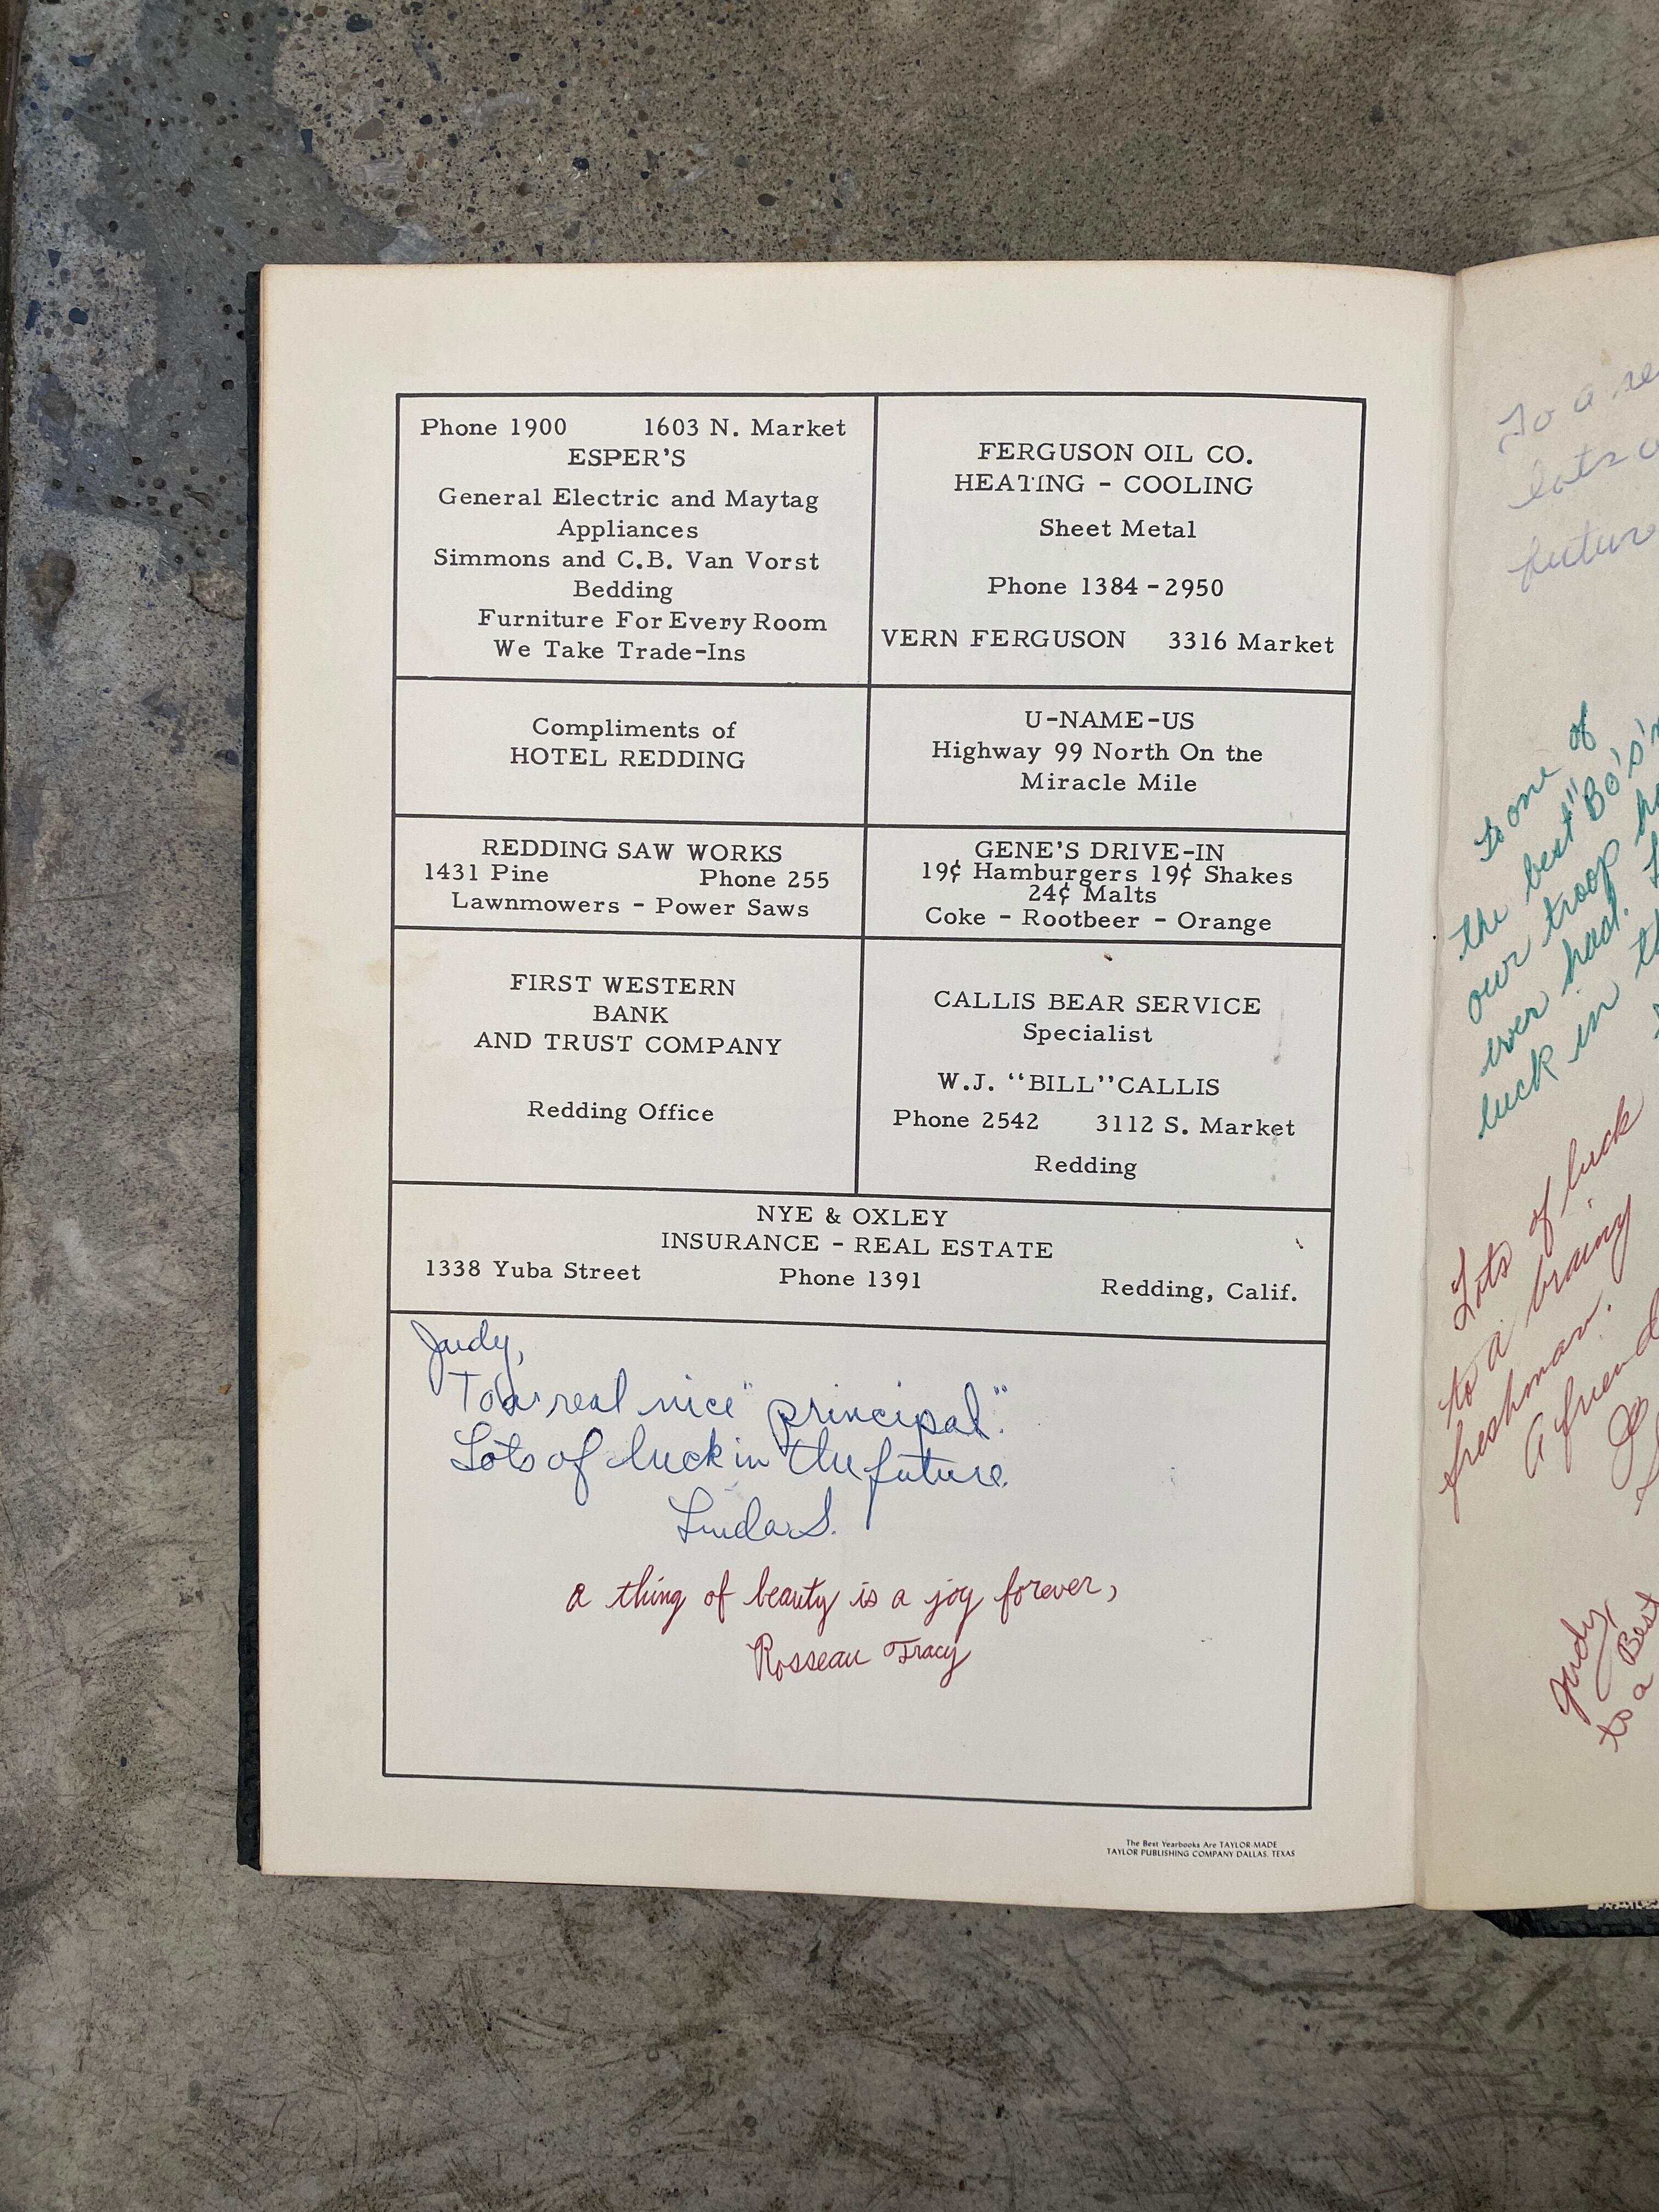 Phone 1900 1603 N. Market
ESPER'S
General Electric and Maytag
Appliances
Simmons and C.B. Van Vorst
Bedding
Furniture For Every Room
We Take Trade-Ins
FERGUSON OIL CO.
HEATING - COOLING
Sheet Metal
Phone 1384 - 2950
VERN FERGUSON 3316 Market
Compliments of
HOTEL REDDING
U-NAME-US
Highway 99 North On the
Miracle Mile
REDDING SAW WORKS
1431 Pine Phone 255
Lawnmowers - Power Saws
GENE'S DRIVE-IN
19¢ Hamburgers 19¢ Shakes
24¢ Malts
Coke - Rootbeer - Orange
FIRST WESTERN
BANK
AND TRUST COMPANY
Redding Office
CALLIS BEAR SERVICE
Specialist
W.J. "BILL" CALLIS
Phone 2542 3112 S. Market
Redding
NYE & OXLEY
INSURANCE - REAL ESTATE
1338 Yuba Street Phone 1391 Redding, Calif.
Judy,
To a real nice "principal."
Lots of luck in the future.
Linda S.
a thing of beauty is a joy forever,
Rosseau Tracy
The Best Yearbooks Are TAYLOR-MADE
TAYLOR PUBLISHING COMPANY DALLAS, TEXAS
To a
lots
To one of
the best "Bo's'n
our troop
ever had.
luck in
Lots of luck
to a brainy
freshman.
A friend
Judy,
to a Best